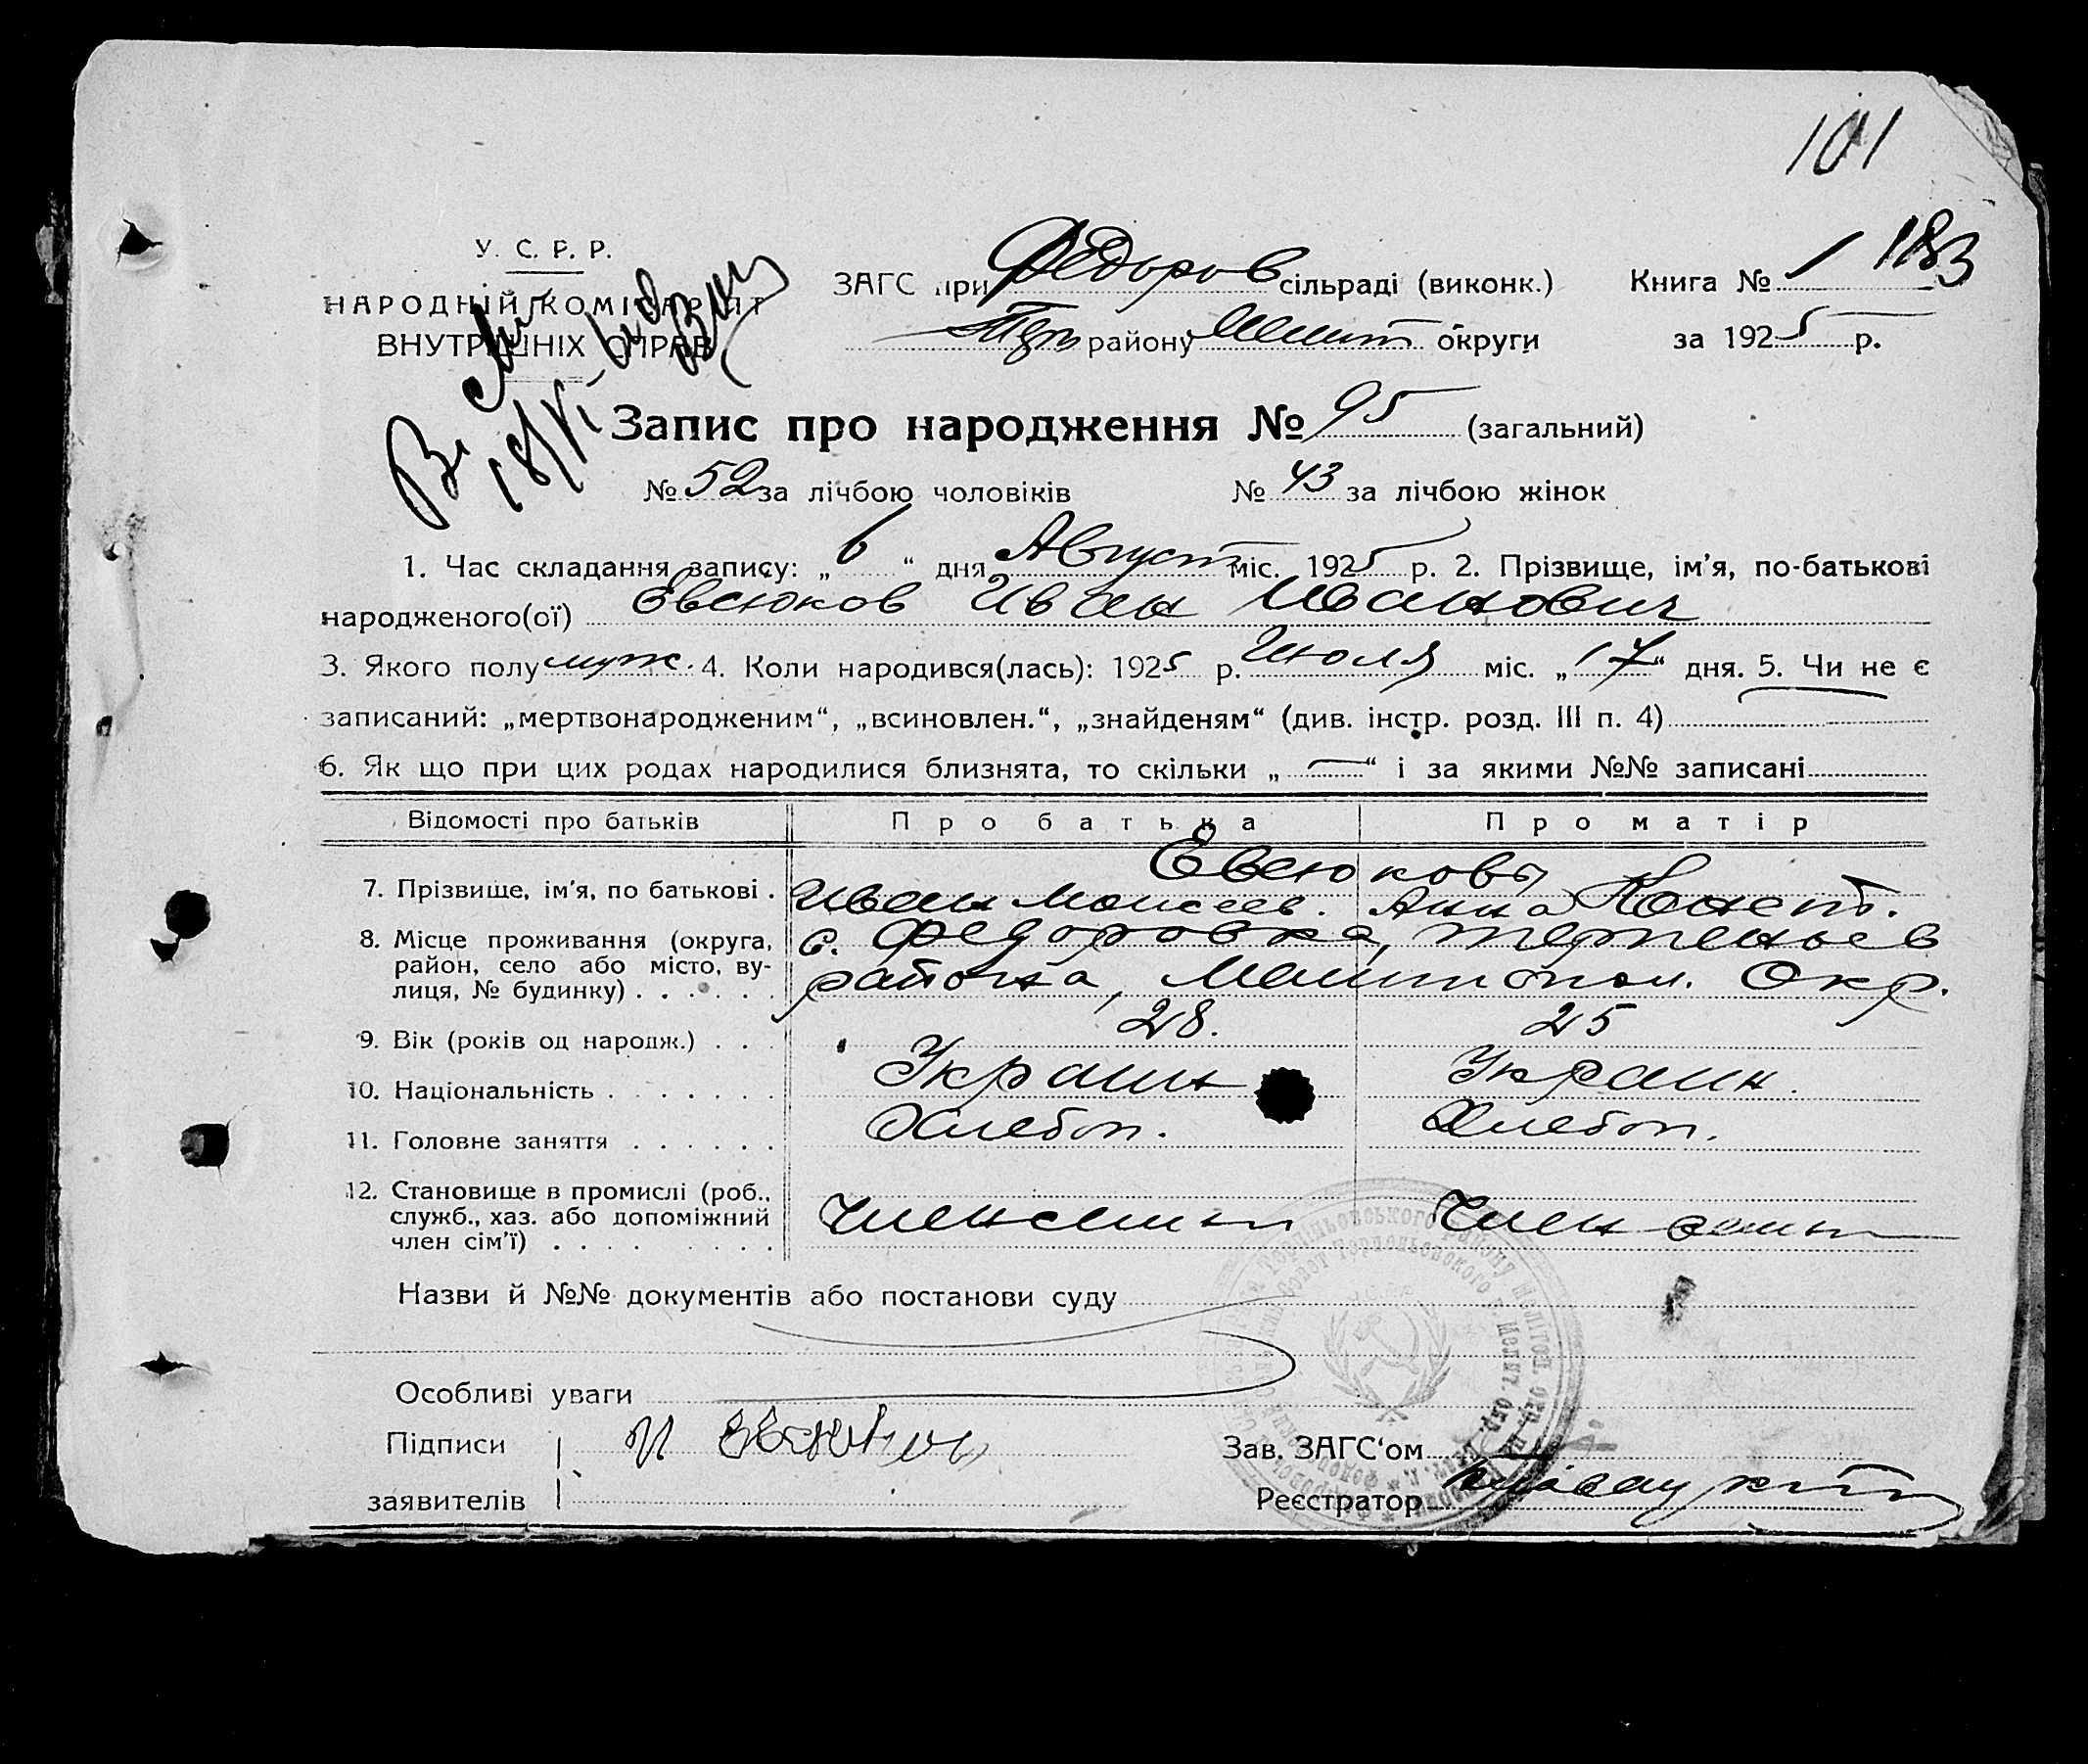 101
183
У. С. Р. Р.
НАРОДНІЙ КОМІСАРІЯТ
ВНУТРІШНІХ СПРАВ
ЗАГС при Федоров сільраді (виконк.) Книга № 1
району Мелит округи за 1925 р.
18/VI
Запис про народження № 95 (загальний)
№ 52 за лічбою чоловіків № 43 за лічбою жінок
1. Час складання запису: „6“ дня Август міс. 1925 р. 2. Прізвище, ім'я, по-батькові
народженого(ої) Евсюков Иван Иванович
3. Якого полу муж. 4. Коли народився(лась): 1925 р. Июля міс. „17“ дня. 5. Чи не є
записаний: „мертвонародженим“, „всиновлен.“, „знайденям“ (див. інстр. розд. III п. 4)
6. Як що при цих родах народилися близнята, то скільки „—“ і за якими №№ записані
Відомості про батьків Про батька Про матір
Евсюковы
7. Прізвище, ім'я, по батькові . Иван Моисеев. Анна Конст.
8. Місце проживання (округа, район, село або місто, вулиця, № будинку) . . . . . . с. Федоровка, Терпеньев
района, Мелитопол. Окр.
9. Вік (років од народж.) . . . 28. 25
10. Національність . . . . . . . Украин Украин.
11. Головне заняття . . . . . . Хлебоп. Хлебоп.
12. Становище в промислі (роб., служб., хаз. або допоміжний член сім'ї) . . . . . . . . Член семьи Член семьи
Назви й №№ документів або постанови суду
Особливі уваги
Підписи И Евсюков
Зав. ЗАГС'ом
заявителів
Реєстратор